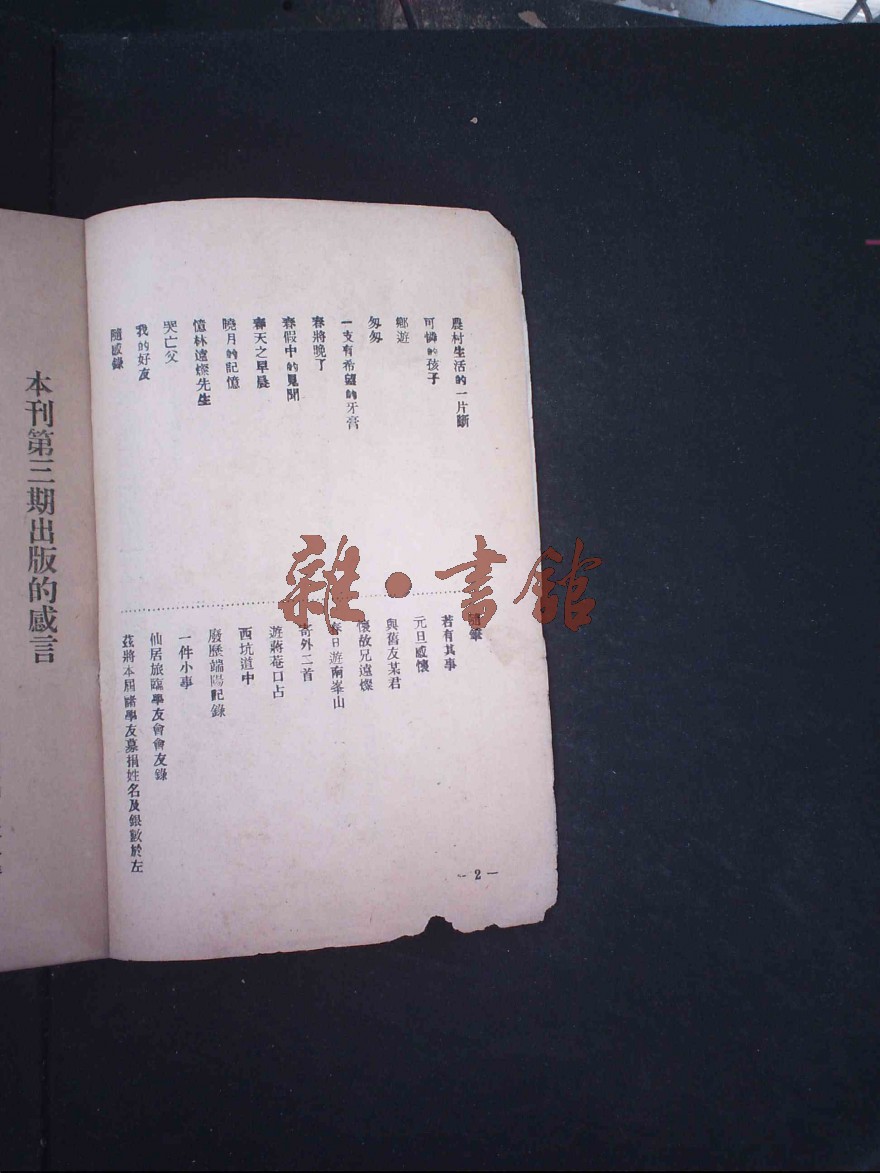 農村生活的一片斷
可憐的孩子
鄉遊
匆匆
一支有希望的牙膏
春將晚了
春假中的見聞
春天之早晨
曉月的記憶
憶林遠燦先生
哭亡父
我的好友
隨感錄
隨筆
若有其事
元旦感懷
與舊友某君
懷故兄遠燦
春日遊南峯山
寄外二首
遊蔣菴口占
西坑道中
廢歷端陽記錄
一件小事
仙居旅臨學友會會友錄
茲將本屆諸學友募捐姓名及銀數於左
— 2 —
本刊第三期出版的感言
雜·書館